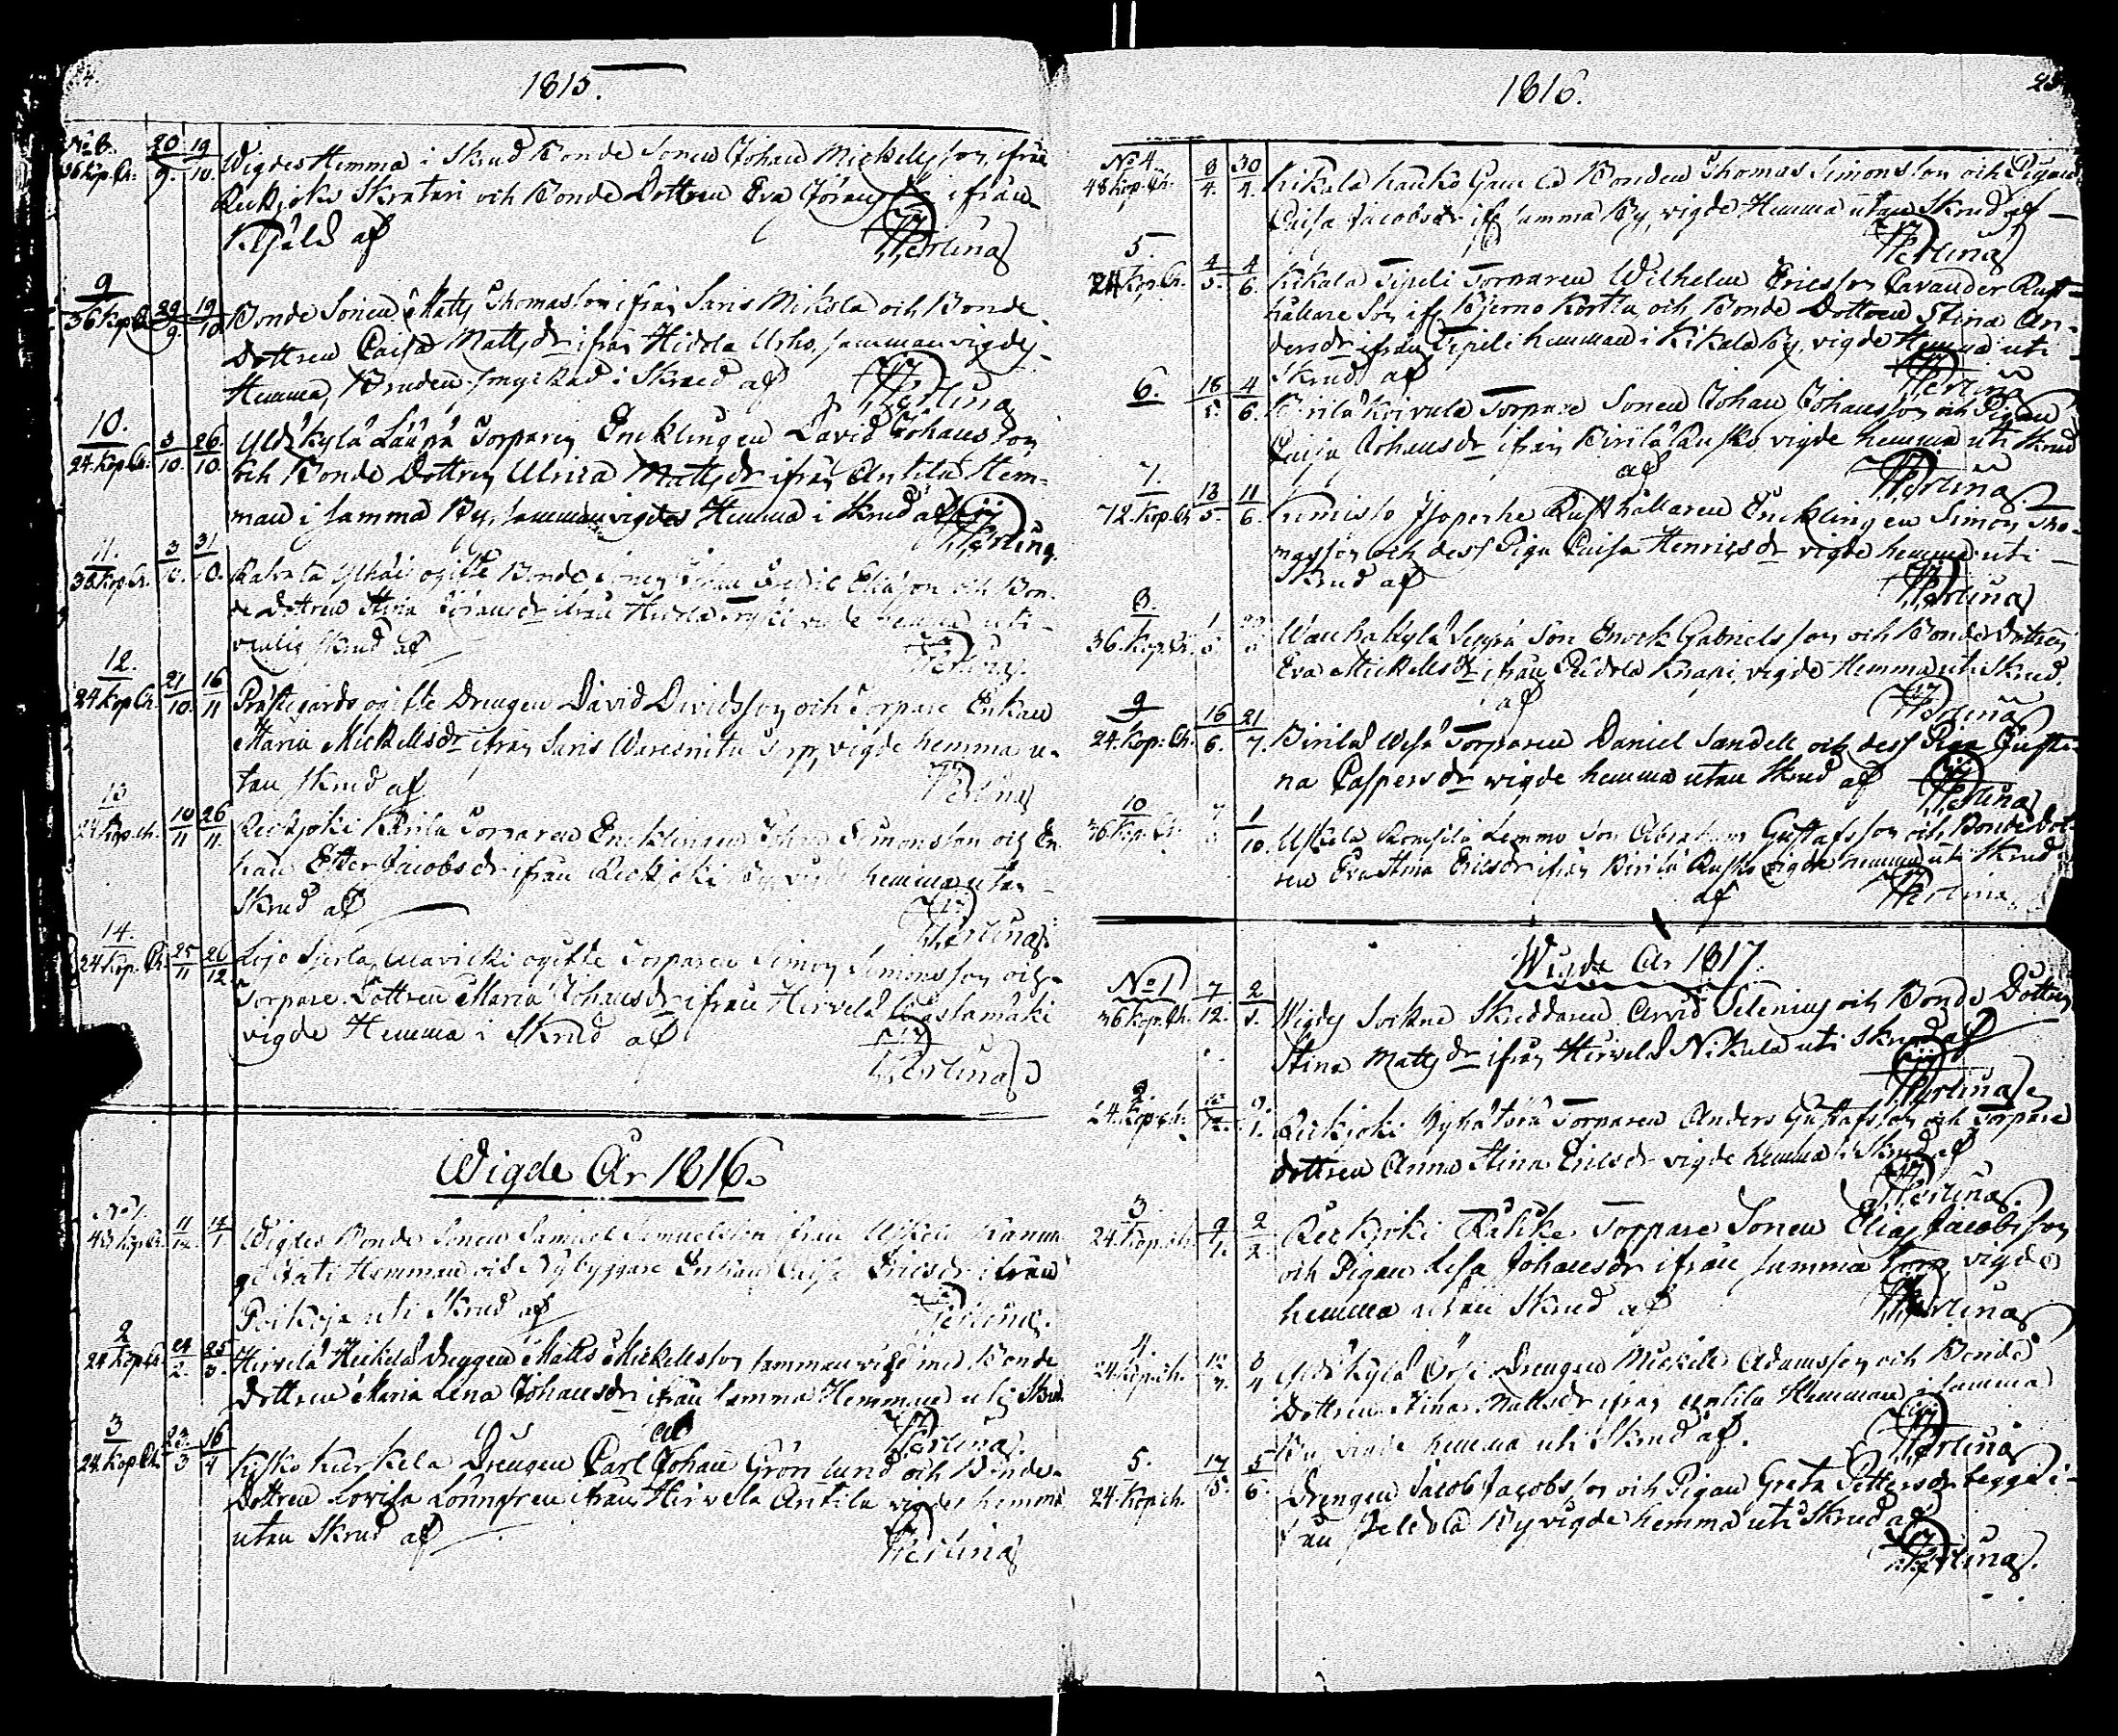 1815.
No 8.
36 Kop. Ch.
20/9. 19/10.
Wigdes Hemma i Skrud Bonde Sonen Johan Mickelsson, ifrån
Reckjoki Skratari och Bonde Dottren Eva Jörans dr ifrån
af
Perlina
9
36 Kop Ch
29/9. 19/10
Bonde Sonen Matts Thomasson ifrån Saris Mikola och Bonde
Dottren Caisa Matts dr ifrån Hidola Usko, sammanvigdes
Hemma, Bruden smyckad i Skrud af
Perlina
10.
24 Kop. Ch.
3/10. 26/10.
Yldkylä Torparen Encklingen David Johansson
och Bonde Dottren Ulrica Matts dr ifrån Antila Hem-
man i samma By, sammanvigdes Hemma i Skrud af
Perlina
11.
36 Kop. Ch.
3/10. 31/10.
ogifte Bonde Sonen Johan Eliasson och Bon-
de Dottren Stina Jöransdr ifrån Hidola vigde hemma uti
vanlig skrud af
Perlina
12.
24 Kop Ch.
21/10. 16/11
Prästegårds ogifte Drengen David Davidsson och Torpare Enkan
Maria Mickelsdr ifrån Saris Torp, vigde hemma u-
tan skrud af
Perlina
13
24 Kop. ch.
10/11 26/11.
Reckjoki Torparen Encklingen Johan Simonsson och En-
kan Ester Jacobsdr ifrån Reckjoki By, vigde hemma utan
Skrud af
Perlina
14.
24 Kop. Ch.
25/11 26/12.
Lojo ogifte Torparen Simon Simonsson och
Torpare Dottren Maria Johansdr ifrån Hirvelä
vigde Hemma i Skrud af
Perlina
Wigde År 1816.
No 1.
48 Kop Ch.
11/12. 14/1
Wigdes Bonde Sonen Samuel Samuelsson ifrån Uskela
Hemman och Nybyggare Enkan Caisa Ericsdr ifrån
uti Skrud af
Perlina
2
24 Kop Ch.
24/2. 25/3.
Hirvelä Heikelä Drengen Matts Mickelsson sammanvigd med Bonde
Dottren Maria Lena Johansdr ifrån samma Hemman uti Skrud
af
Perlina
3
24 Kop Ch.
23/3 16/4
Kisko Kurkela Drengen Carl Johan Grönlund och Bonde
Dottren Lovisa Lönnqren ifrån Hirvelä Antila vigdes hemma
utan Skrud af
Perlina
1816.
25
No 4.
48 Kop. Ch.
8/4. 30/4.
Kikala Bonden Thomas Simonsson och Pigan
Caisa Jacobsdr ifr samma By, vigde Hemma utan Skrud af
Perlina
5
24 Kop. Ch.
4/5. 4/6.
Kikala Tipeli Torparen Wilhelm Ericsson Cavander Rust-
hållare Son ifr Bjerno Kortla och Bonde Dottren Stina An-
dersdr ifrån Tipeli hemman i Kikala By, vigde Hemma uti
Skrud af
Perlina
6.
18/5. 4/6.
Birilä Torpare Sonen Johan Johansson och Pigan
Caisa Johansdr ifrån Birilä Rusko, vigde hemma uti Skrud
af
Perlina
7.
72. Kop. Ch
13/5. 11/6.
Rusthållaren Encklingen Simon Tho-
masson och dess Piga Caisa Henricsdr vigde hemma uti
Skrud af
Perlina
8.
36. Kop. Ch.
Wanhakylä Seppä Son Enock Gabrielsson och Bonde Dottren
Eva Mickelsdr ifrån Hidola Knapi, vigde Hemma uti Skrud.
af
Perlina
9
24. Kop. Ch.
16/6. 21/7.
Birilä Torparen Daniel Sandell och dess Piga Justi-
na Caspersdr vigde hemma utan Skrud af
Perlina
10
36 Kop. Ch.
1/10.
Uskela Lemmo Son Abraham Gustafsson och Bonde Dot-
ren Eva Stina Ericsdr ifrån Birilä Rusko vigde hemma uti Skrud
af
Perlina
Wigde År 1817.
No 1
36 Kop. Ch.
7/12. 2/1.
Wigdes Sockne Skreddaren Arvid Selenius och Bonde Dottren
Stina Matts dr ifrån Hirvelä Nikula uti skrud af
Perlina
2.
24. Kop. ch.
Reckjoki Torparen Anders Gustafsson och Torpare
dottren Anna Stina Ericsdr vigde hemma i Skrud af
Perlina
3
24. Kop. ch.
9/1. 2/2.
Reckjoki Torpare Sonen Elias Jacobsson
och Pigan Lisa Johansdr ifrån samma torp, vigde
hemma utan Skrud af
Perlina
4.
24. Kop. ch.
Yldkylä Drengen Mickel Adamsson och Bonde
Dottren Stina Mattsdr ifrån Antila Hemman i samma
By vigde hemma uti Skrud af.
Perlina
5.
24. Kop. ch.
17/5. 5/6.
Drengen Jacob Jacobsson och Pigan Greta Pettersdr begge i-
från By vigde hemma uti Skrud af
Perlina.